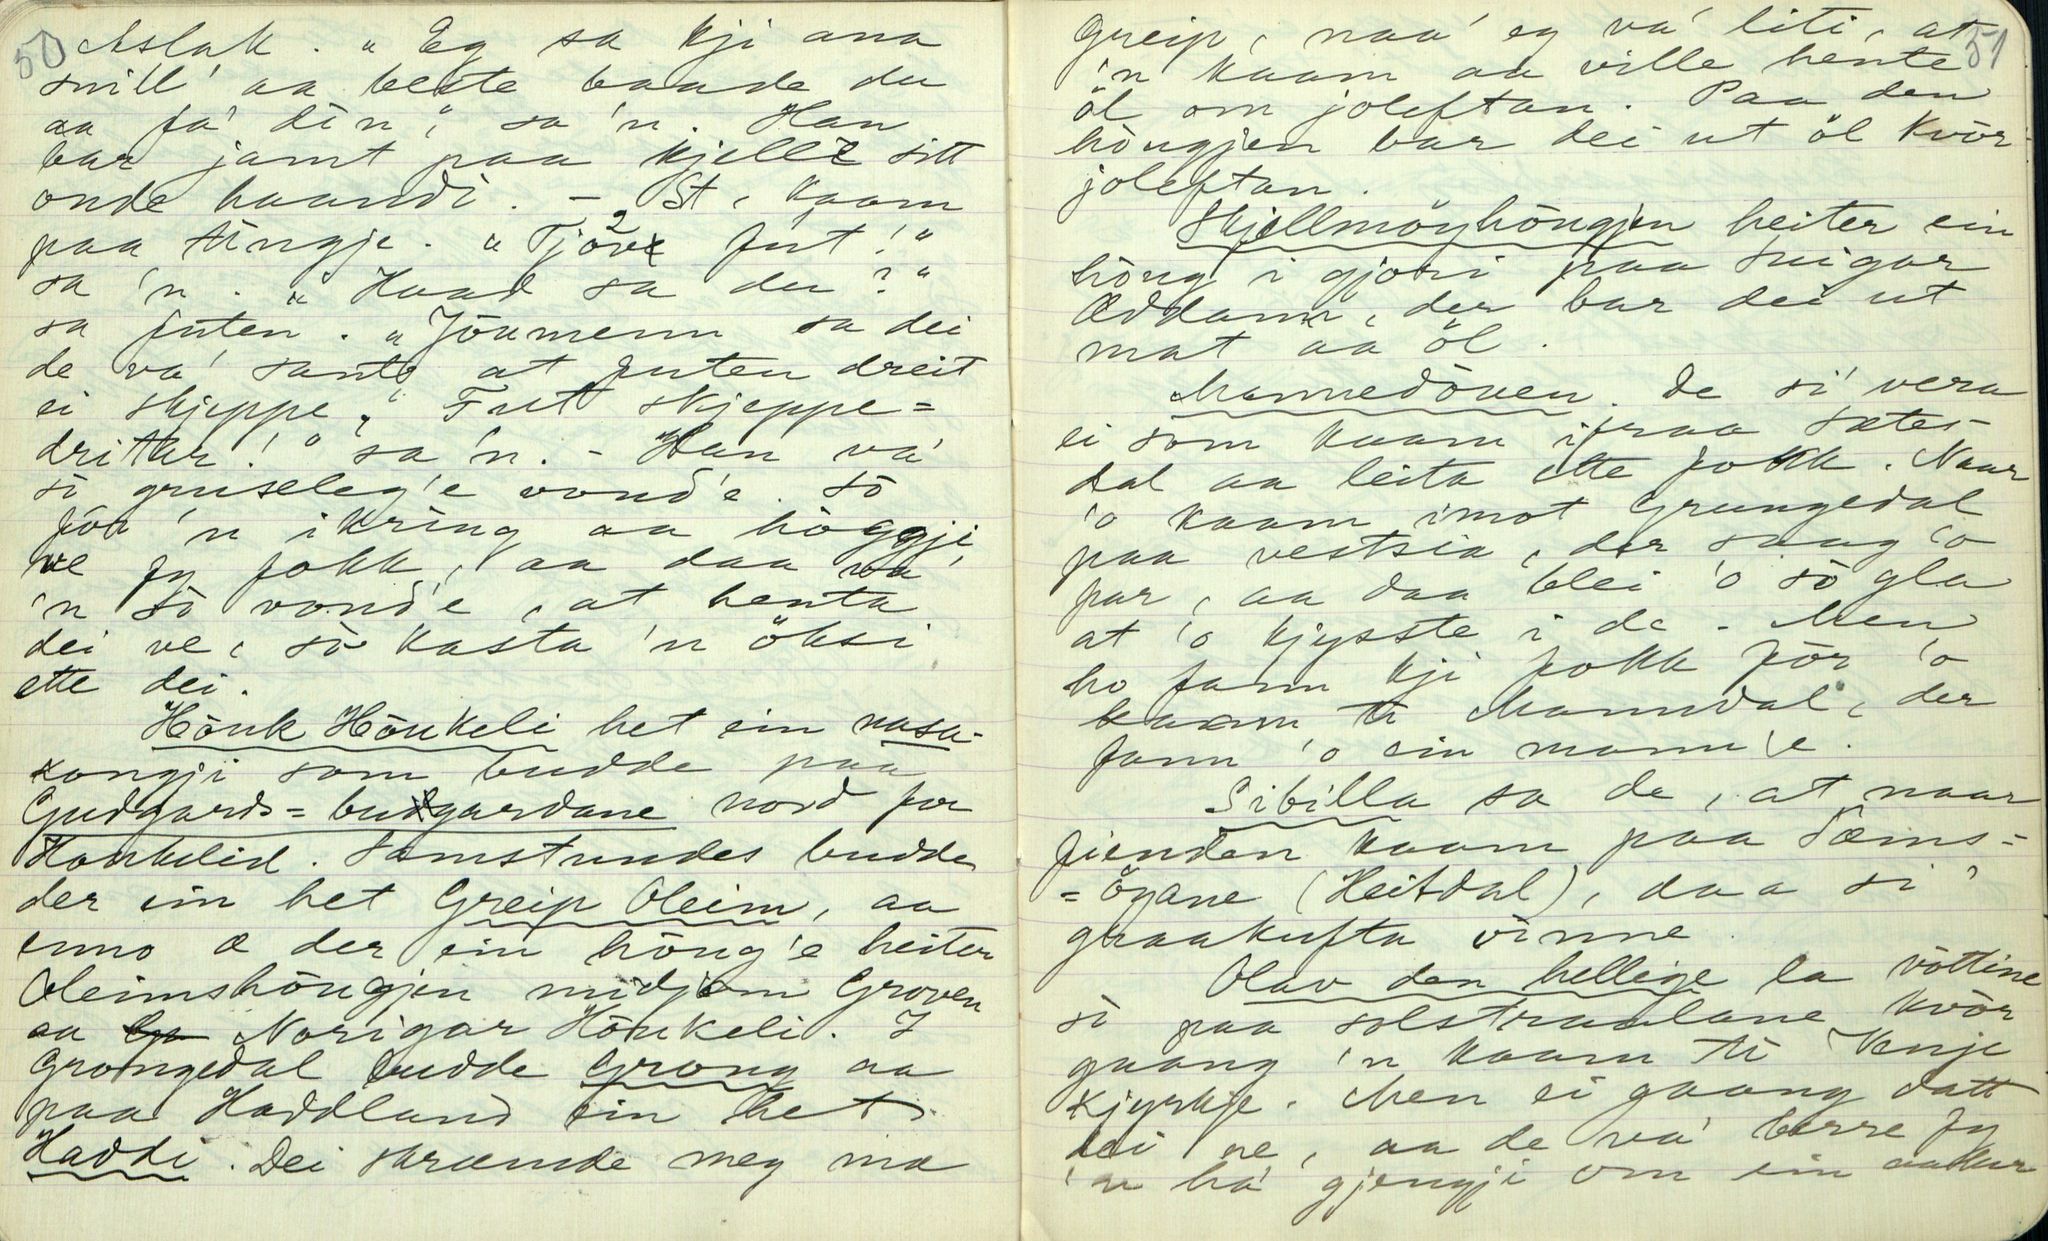 50
Aslak. "Eg sa kji ana
snill' aa beste baade du
aa fa' din," sa 'n. Han
bar jamt paa kjelle sitt
onde haandi. – St, kaam
paa tingje. "Tjóv² fut!"
sa 'n. "Haad sa du?"
sa futen. "Jóumenn sa dei
de va' sant at futen dreit
ei skjeppe," "Fut skjeppe=
dritar!" sa 'n. – Han va'
so gruseleg'e vond'e. So
fór 'n ikring aa höggji
ve fy fokk, aa daa va'
'n so vond'e, at henta
dei ve, so kasta 'n öksi
ette dei.
Hóuk Hóukeli het ein nasa-
kongji som budde paa
Gudgards=budgardane nord for
Haukelid. Samstundes budde
der ein het Greip Oleim, aa
enno æ der ein hóug'e heiter
Oleimshóugjen midjom Groven
aa Norigar Hóukeli. I
Grongedal budde Grong aa
paa Haddland ein het
Haddi. Dei skræmde meg mæ
51
Greip, naa' eg va' liti, at
'n kaam aa ville hente
öl om joleftan. Paa den
hóugjen bar dei ut öl kvór
joleftan.
Skjellmöyhóugjen heiter ein
hóug i gjori paa Snigar
Æddann, der bar dei ut
mat aa öl.
Mannedóuen. De si' vera
ei som kaam ifraa Sætes-
dal aa leita ette fokk. Naar
'o kaam imot Grungedal
paa vestsia, der saag 'o
far, aa daa blei 'o so gla
at 'o kjysste i de. Men
ho fann kji fokk fór 'o
kaam ti Manndal, der
fann 'o ein mann'e.
Sibilla sa de, at naar
fienden kaam paa Sæms=
=öyane (Heitdal), daa si'
graakufta vinne.
Olav den hellige la vóttine
si paa solstraalane kvór
gaang 'n kaam ti Vinje
kjyrkje. Men ei gaang datt
dei ne, aa de va' berre fy
'n ha' gjengji om ein aaker